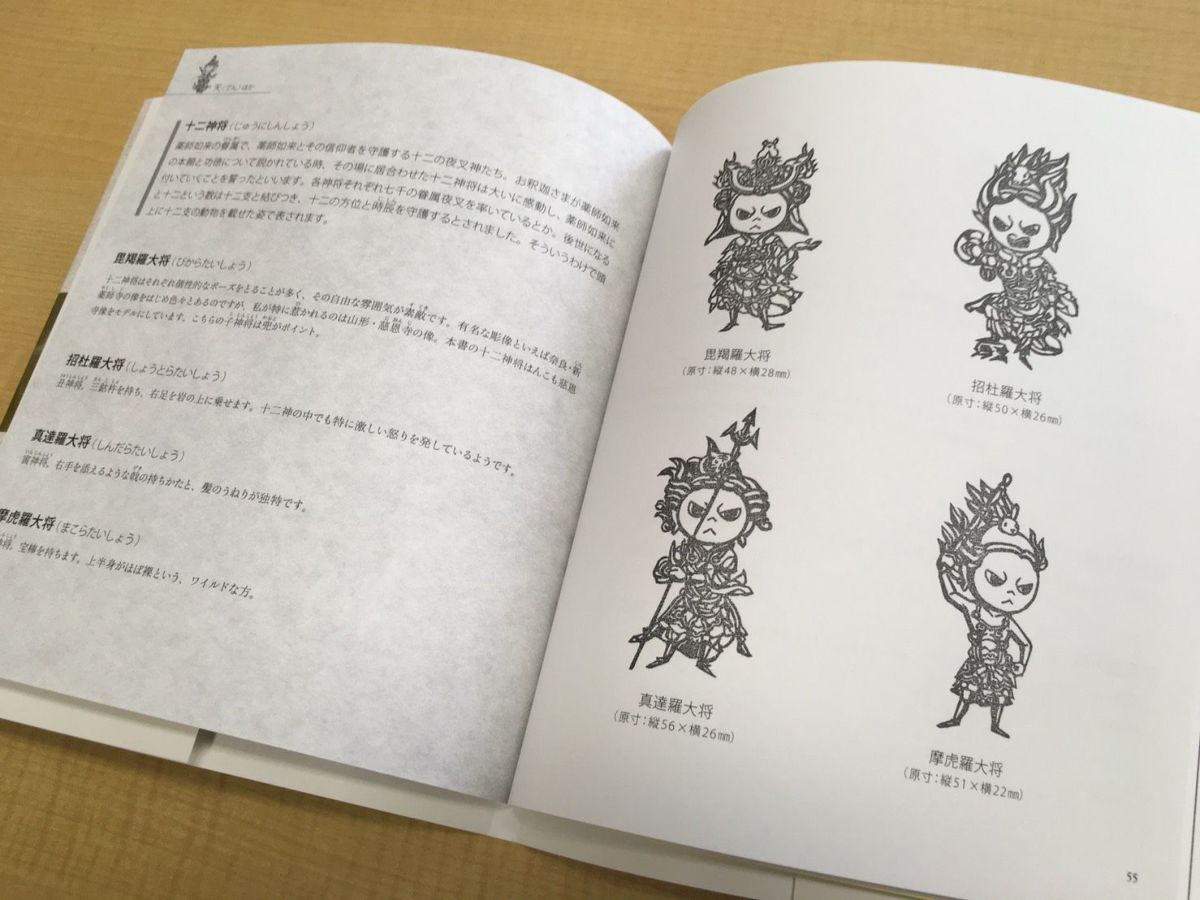 天(てん)ほか
十二神将(じゅうにしんしょう)
薬師如来の眷属で、薬師如来とその信仰者を守護する十二の夜叉神たち。お釈迦さまが薬師如来
の本願と功徳について説かれている時、その場に居合わせた十二神将は大いに感動し、薬師如来に
付いていくことを誓ったといいます。各神将それぞれ七千の眷属夜叉を率いているとか。後世になる
と十二という数は十二支と結びつき、十二の方位と時辰を守護するとされました。そういうわけで頭
上に十二支の動物を載せた姿で表されます。
毘羯羅大将(びからたいしょう)
十二神将はそれぞれ個性的なポーズをとることが多く、その自由な雰囲気が素敵です。有名な彫像といえば奈良・新
薬師寺の像をはじめ色々とあるのですが、私が特に惹かれるのは山形・慈恩寺の像。本書の十二神将はんこも慈恩
寺像をモデルにしています。こちらの子神将は兜がポイント。
招杜羅大将(しょうとらたいしょう)
丑神将。三鈷杵を持ち、右足を岩の上に乗せます。十二神の中でも特に激しい怒りを発しているようです。
真達羅大将(しんだらたいしょう)
寅神将。右手を添えるような戟の持ちかたと、髪のうねりが独特です。
摩虎羅大将(まこらたいしょう)
神将。宝棒を持ちます。上半身がほぼ裸という、ワイルドな方。
毘羯羅大将
(原寸:縦48×横28㎜)
招杜羅大将
(原寸:縦50×横26㎜)
真達羅大将
(原寸:縦56×横26㎜)
摩虎羅大将
(原寸:縦51×横22㎜)
55